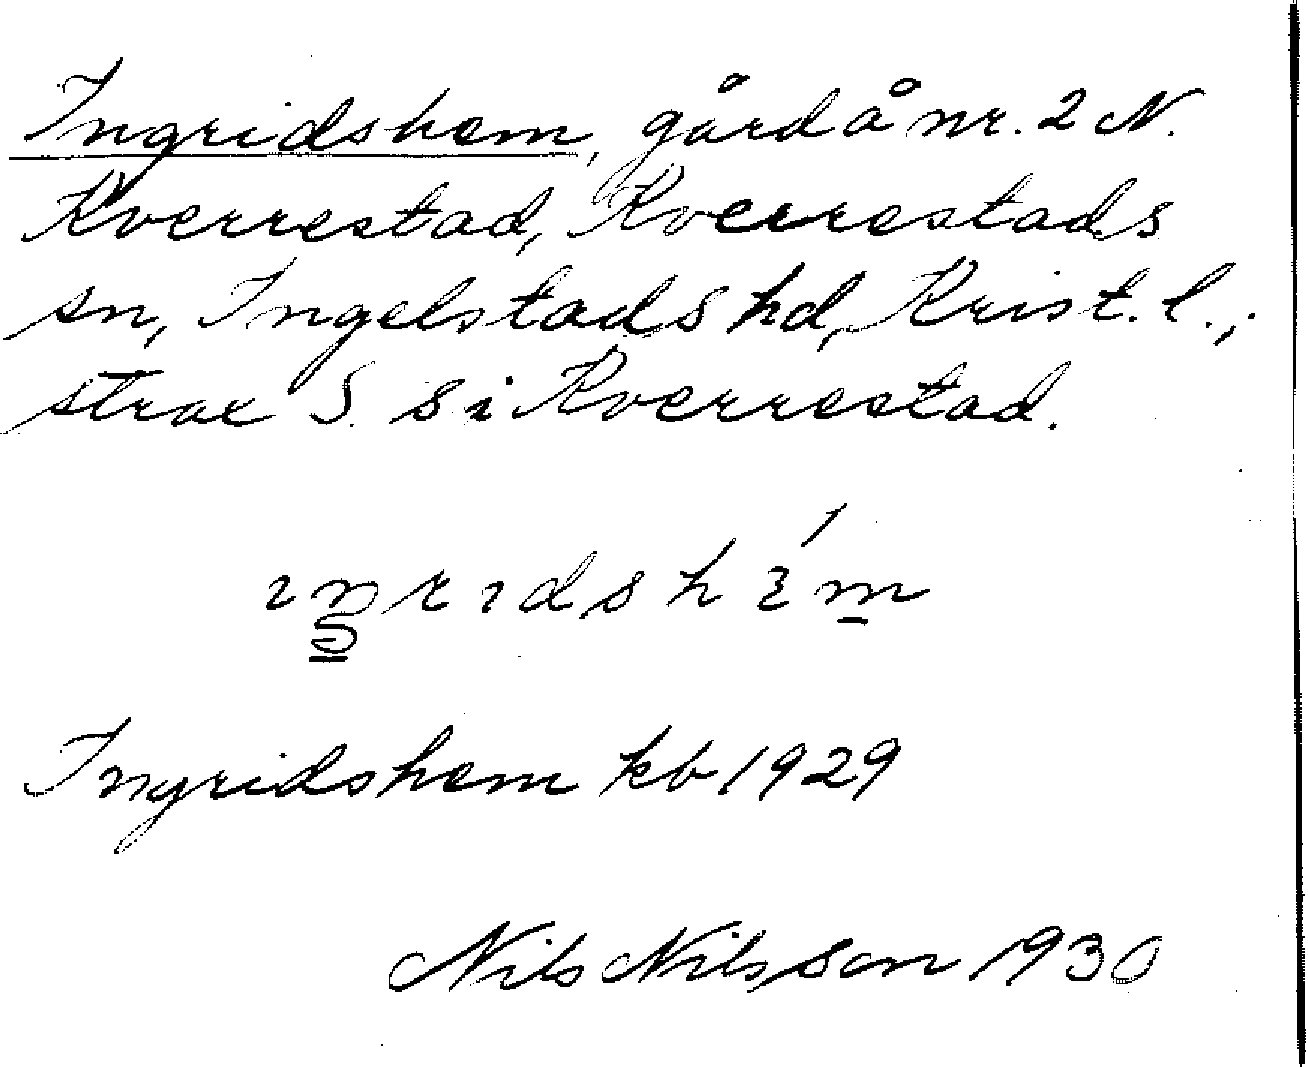 Ingridshem, gård å nr. 2 N.
Kverrestad, Kverrestads
sn, Ingelstads hd, Krist. l.,
strax S. s i Kverrestad.
ıŋrıdshɛ́m
Ingridshem kb 1929
Nils Nilsson 1930